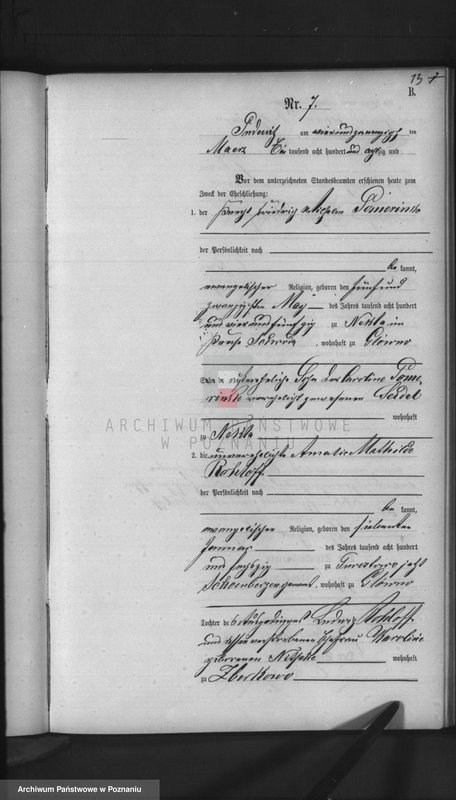 13
B.
Nr. 7.
Pudewitz am vierundzwanzigsten
Maerz Ein tausend acht hundert und achtzig und
Vor dem unterzeichneten Standesbeamten erschienen heute zum
Zweck der Eheschließung:
1. der Knecht Friedrich Wilhelm Pomerinke
der Persönlichkeit nach
be kannt,
evangelischer Religion, geboren den fünfund
zwanzigsten May des Jahres tausend acht hundert
und vierundfünfzig zu Nekla im
Kreise Schroda, wohnhaft zu Glowno
Sohn der Caroline Pome-
rinke Seidel
wohnhaft
zu Nekla
2. die unverehelichte Amalie Mathilde
Rohloff
der Persönlichkeit nach
be kannt,
evangelischer Religion, geboren den siebenten
Januar des Jahres tausend acht hundert
und sechszig zu jetzt
genannt, wohnhaft zu Glowno
Tochter des Ludwig Rohloff
und dessen verstorbenen Ehefrau Karoline
geborenen Nitschke wohnhaft
zu Zberkowo
ARCHIWUM PAŃSTWOWE
W POZNANIU
Archiwum Państwowe w Poznaniu